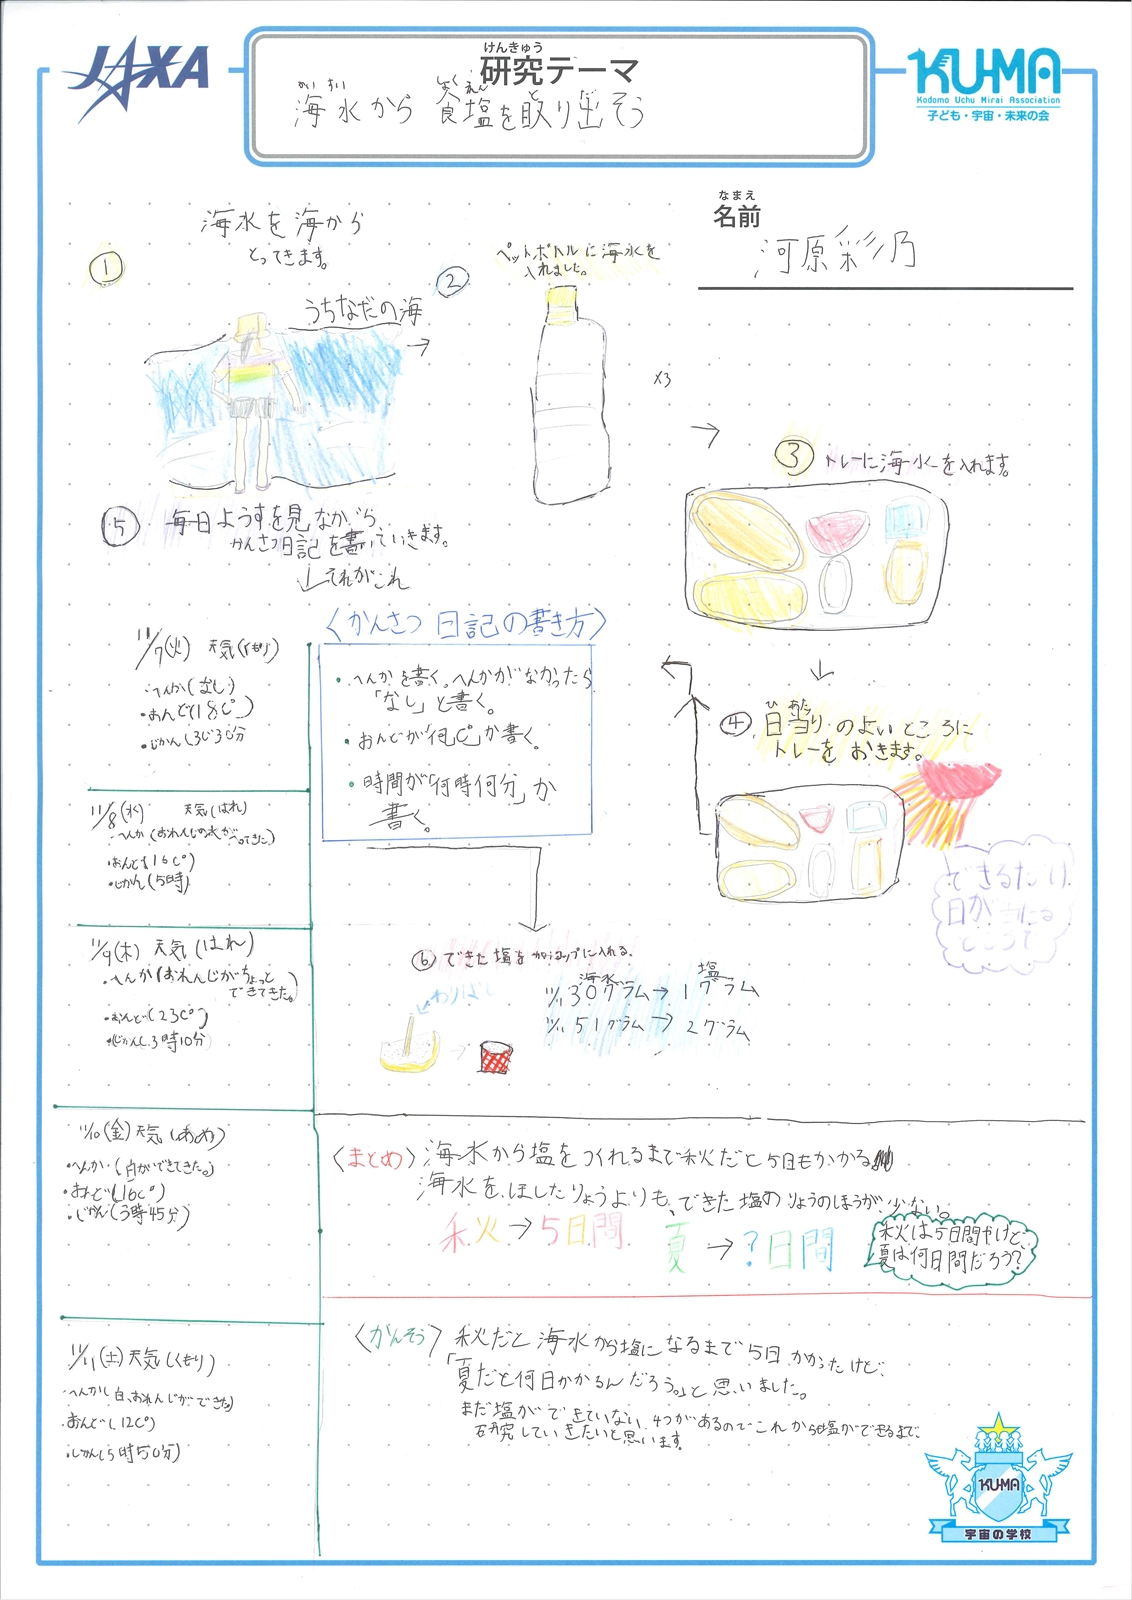 JAXA
けんきゅう
研究テーマ
かい すい しょく えん と だ
海水から 食塩を取り出そう
KU-MA
Kodomo Uchu Mirai Association
子ども・宇宙・未来の会
なまえ
名前
河原彩乃
① 海水を海から
とってきます。
うちなだの海
→
② ペットボトルに海水を
入れました。
×3
→
③ トレーに海水を入れます。
↓
④ 日当りのよいところに
ひ あた
トレーをおきます。
できるだけ
日が当たる
ところで
⑤ 毎日ようすを見ながら
かんさつ日記を書いていきます。
↓それがこれ
〈かんさつ日記の書き方〉
・へんかを書く。へんかがなかったら
「なし」と書く。
・おんどが「何C°」か書く。
・時間が「何時何分」か
書く。
11/7(火) 天気(くもり)
・へんか(なし)
・おんど(18C°)
・じかん(3じ30分
11/8(水) 天気(はれ)
・へんか(おれんじの水がへってきた)
・おんど(16C°)
・じかん(5時)
11/9(木) 天気(はれ)
・へんか(おれんじがちょっと
できてきた。)
・おんど(23C°)
・じかん(3時10分)
11/10(金) 天気(あめ)
・へんか(白ができてきた。)
・おんど(16C°)
・じかん(3時45分)
11/11(土) 天気(くもり)
・へんか(白、おれんじができた)
・おんど(12C°)
・じかん(5時50分)
⑥ できた塩をカップに入れる。
わりばし
海水 塩
11/11 30グラム→1グラム
11/11 51グラム→2グラム
〈まとめ〉海水から塩をつくれるまで秋だと5日もかかる
海水を、ほしたりょうよりも、できた塩のりょうのほうが、少ない。
秋→5日間 夏→?日間
秋は5日間やけど、
夏は何日間だろう?
〈かんそう〉秋だと海水から塩になるまで5日かかったけど、
「夏だと何日かかるんだろう。」と思いました。
まだ塩ができていない4つがあるのでこれからも塩ができるまで、
研究していきたいと思います。
KU-MA
宇宙の学校